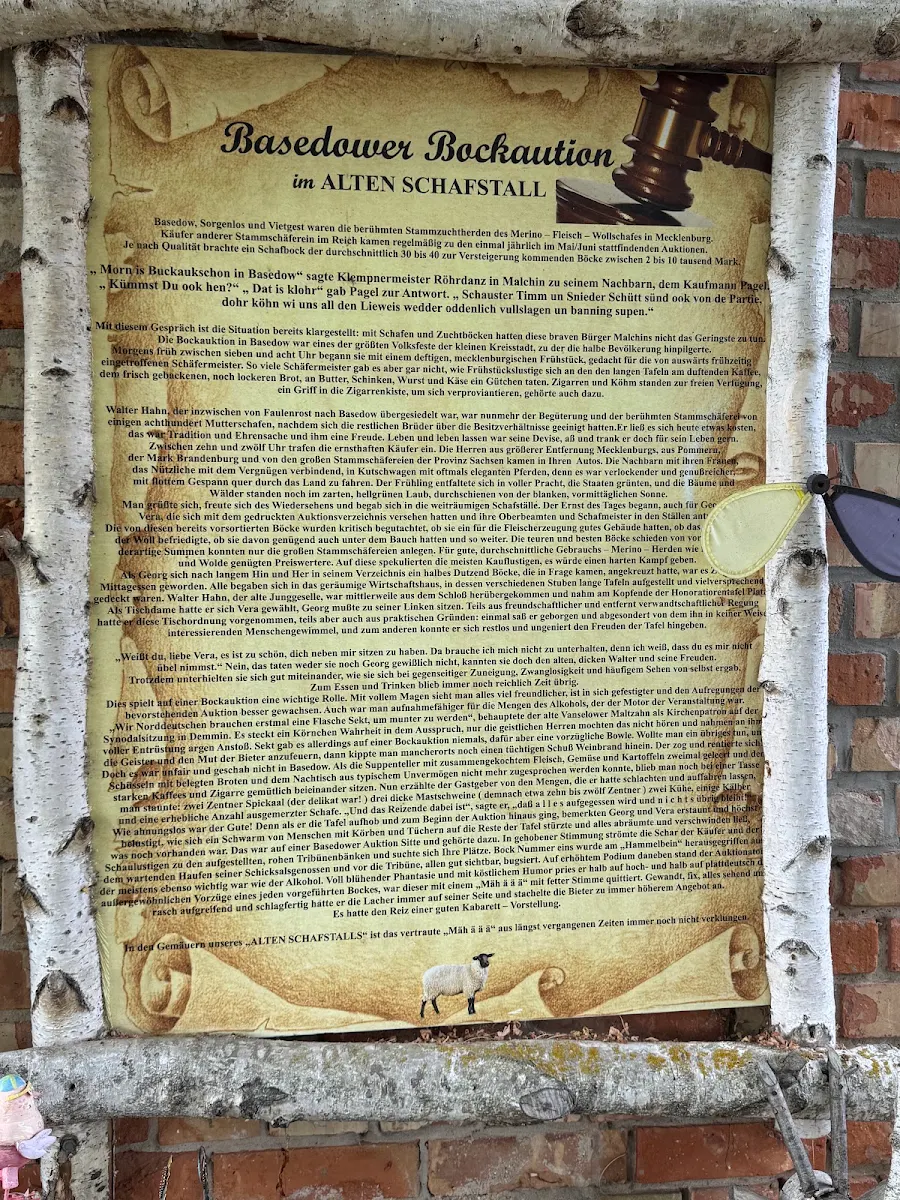 Basedower Bockaution
im ALTEN SCHAFSTALL
Basedow, Sorgenlos und Vietgest waren die berühmten Stammzuchtherden des Merino – Fleisch – Wollschafes in Mecklenburg.
Käufer anderer Stammschäferein im Reich kamen regelmäßig zu den einmal jährlich im Mai/Juni stattfindenden Auktionen.
Je nach Qualität brachte ein Schafbock der durchschnittlich 30 bis 40 zur Versteigerung kommenden Böcke zwischen 2 bis 10 tausend Mark.
„ Morn is Buckaukschon in Basedow“ sagte Klempnermeister Röhrdanz in Malchin zu seinem Nachbarn, dem Kaufmann Pagel.
„ Kümmst Du ook hen?“ „ Dat is klohr“ gab Pagel zur Antwort. „ Schauster Timm un Snieder Schütt sünd ook von de Partie,
dohr köhn wi uns all den Lieweis wedder oddenlich vullslagen un banning supen.“
Mit diesem Gespräch ist die Situation bereits klargestellt: mit Schafen und Zuchtböcken hatten diese braven Bürger Malchins nicht das Geringste zu tun.
Die Bockauktion in Basedow war eines der größten Volksfeste der kleinen Kreisstadt, zu der die halbe Bevölkerung hinpilgerte.
Morgens früh zwischen sieben und acht Uhr begann sie mit einem deftigen, mecklenburgischen Frühstück, gedacht für die von auswärts frühzeitig
eingetroffenen Schäfermeister. So viele Schäfermeister gab es aber gar nicht, wie Frühstückslustige sich an den den langen Tafeln am duftenden Kaffee,
dem frisch gebackenen, noch lockeren Brot, an Butter, Schinken, Wurst und Käse ein Gütchen taten. Zigarren und Köhm standen zur freien Verfügung,
ein Griff in die Zigarrenkiste, um sich verproviantieren, gehörte auch dazu.
Walter Hahn, der inzwischen von Faulenrost nach Basedow übergesiedelt war, war nunmehr der Begüterung und der berühmten Stammschäferei von
einigen achthundert Mutterschafen, nachdem sich die restlichen Brüder über die Besitzverhältnisse geeinigt hatten.Er ließ es sich heute etwas kosten,
das war Tradition und Ehrensache und ihm eine Freude. Leben und leben lassen war seine Devise, aß und trank er doch für sein Leben gern.
Zwischen zehn und zwölf Uhr trafen die ernsthaften Käufer ein. Die Herren aus größerer Entfernung Mecklenburgs, aus Pommern,
der Mark Brandenburg und von den großen Stammschäfereien der Provinz Sachsen kamen in Ihren Autos. Die Nachbarn mit ihren Frauen,
das Nützliche mit dem Vergnügen verbindend, in Kutschwagen mit oftmals eleganten Pferden, denn es war verlockender und genußreicher,
mit flottem Gespann quer durch das Land zu fahren. Der Frühling entfaltete sich in voller Pracht, die Staaten grünten, und die Bäume und
Wälder standen noch im zarten, hellgrünen Laub, durchschienen von der blanken, vormittäglichen Sonne.
Man grüßte sich, freute sich des Wiedersehens und begab sich in die weiträumigen Schafställe. Der Ernst des Tages begann, auch für Geo
Vera, die sich mit dem gedruckten Auktionsverzeichnis versehen hatten und ihre Oberbeamten und Schafmeister in den Ställen ant
Die von diesen bereits vorsortierten Böcke wurden kritisch begutachtet, ob sie ein für die Fleischerzeugung gutes Gebäude hatten, ob das
der Woll befriedigte, ob sie davon genügend auch unter dem Bauch hatten und so weiter. Die teuren und besten Böcke schieden von vor
derartige Summen konnten nur die großen Stammschäfereien anlegen. Für gute, durchschnittliche Gebrauchs – Merino – Herden wie
und Wolde genügten Preiswertere. Auf diese spekulierten die meisten Kauflustigen, es würde einen harten Kampf geben.
Als Georg sich nach langem Hin und Her in seinem Verzeichnis ein halbes Dutzend Böcke, die in Frage kamen, angekreuzt hatte, war es
Mittagessen geworden. Alle begaben sich in das geräumige Wirtschaftshaus, in dessen verschiedenen Stuben lange Tafeln aufgestellt und vielversprechend
gedeckt waren. Walter Hahn, der alte Junggeselle, war mittlerweile aus dem Schloß herübergekommen und nahm am Kopfende der Honoratiorentafel Platz.
Als Tischdame hatte er sich Vera gewählt, Georg mußte zu seiner Linken sitzen. Teils aus freundschaftlicher und entfernt verwandtschaftlicher Regung
hatte er diese Tischordnung vorgenommen, teils aber auch aus praktischen Gründen: einmal saß er geborgen und abgesondert von dem ihn in keiner Weise
interessierenden Menschengewimmel, und zum anderen konnte er sich restlos und ungeniert den Freuden der Tafel hingeben.
„Weißt du, liebe Vera, es ist zu schön, dich neben mir sitzen zu haben. Da brauche ich mich nicht zu unterhalten, denn ich weiß, dass du es mir nicht
übel nimmst.“ Nein, das taten weder sie noch Georg gewißlich nicht, kannten sie doch den alten, dicken Walter und seine Freuden.
Trotzdem unterhielten sie sich gut miteinander, wie sie sich bei gegenseitiger Zuneigung, Zwanglosigkeit und häufigem Sehen von selbst ergab.
Zum Essen und Trinken blieb immer noch reichlich Zeit übrig.
Dies spielt auf einer Bockauktion eine wichtige Rolle. Mit vollem Magen sieht man alles viel freundlicher, ist in sich gefestigter und den Aufregungen der
bevorstehenden Auktion besser gewachsen. Auch war man aufnahmefähiger für die Mengen des Alkohols, der der Motor der Veranstaltung war.
„Wir Norddeutschen brauchen erstmal eine Flasche Sekt, um munter zu werden“, behauptete der alte Vanselower Maltzahn als Kirchenpatron auf der
Synodalsitzung in Demmin. Es steckt ein Körnchen Wahrheit in dem Ausspruch, nur die geistlichen Herren mochten das nicht hören und nahmen an ihm
voller Entrüstung argen Anstoß. Sekt gab es allerdings auf einer Bockauktion niemals, dafür aber eine vorzügliche Bowle. Wollte man ein übriges tun, um
die Geister und den Mut der Bieter anzufeuern, dann kippte man mancherorts noch einen tüchtigen Schuß Weinbrand hinein. Der zog und rentierte sich!
Doch es war unfair und geschah nicht in Basedow. Als die Suppenteller mit zusammengekochtem Fleisch, Gemüse und Kartoffeln zweimal geleert und den
Schüsseln mit belegten Broten und dem Nachtisch aus typischem Unvermögen nicht mehr zugesprochen werden konnte, blieb man noch bei einer Tasse
starken Kaffees und Zigarre gemütlich beieinander sitzen. Nun erzählte der Gastgeber von den Mengen, die er hatte schlachten und auffahren lassen,
man staunte: zwei Zentner Spickaal (der delikat war! ) drei dicke Mastschweine ( demnach etwa zehn bis zwölf Zentner ) zwei Kühe, einige Kälber
und eine erhebliche Anzahl ausgemerzter Schafe. „Und das Reizende dabei ist“, sagte er, „daß a l l e s aufgegessen wird und n i c h t s übrig bleibt!“
Wie ahnungslos war der Gute! Denn als er die Tafel aufhob und zum Beginn der Auktion hinaus ging, bemerkten Georg und Vera erstaunt und höchst
belustigt, wie sich ein Schwarm von Menschen mit Körben und Tüchern auf die Reste der Tafel stürzte und alles abräumte und verschwinden ließ,
was noch vorhanden war. Das war auf einer Basedower Auktion Sitte und gehörte dazu. In gehobener Stimmung strömte die Schar der Käufer und der
Schaulustigen zu den aufgestellten, rohen Tribünenbänken und suchte sich Ihre Plätze. Bock Nummer eins wurde am „Hammelbein“ herausgegriffen aus
dem wartenden Haufen seiner Schicksalsgenossen und vor die Tribüne, allen gut sichtbar, bugsiert. Auf erhöhtem Podium daneben stand der Auktionator
der meistens ebenso wichtig war wie der Alkohol. Voll blühender Phantasie und mit köstlichem Humor pries er halb auf hoch- und halb auf plattdeutsch d
außergewöhnlichen Vorzüge eines jeden vorgeführten Bockes, war dieser mit einem „Mäh ä ä ä“ mit fetter Stimme quittiert. Gewandt, fix, alles sehend
rasch aufgreifend und schlagfertig hatte er die Lacher immer auf seiner Seite und stachelte die Bieter zu immer höherem Angebot an.
Es hatte den Reiz einer guten Kabarett – Vorstellung.
In den Gemäuern unseres „ALTEN SCHAFSTALLS“ ist das vertraute „Mäh ä ä ä“ aus längst vergangenen Zeiten immer noch nicht verklungen.